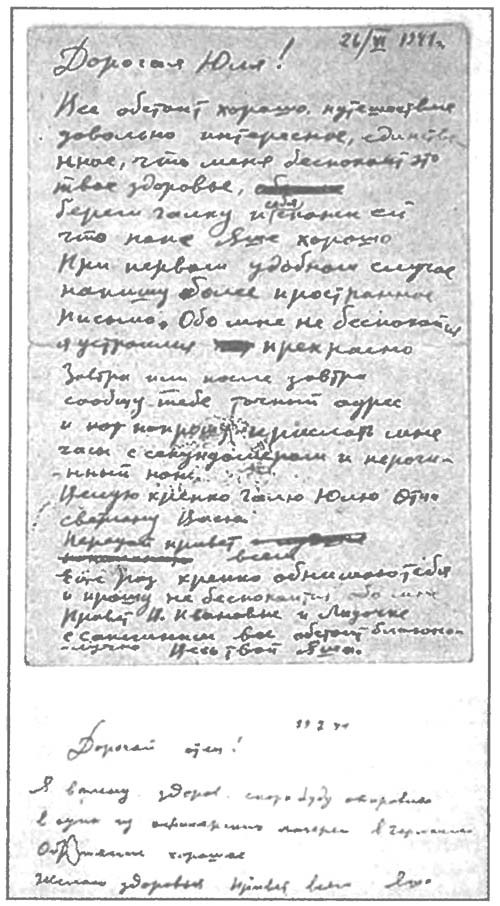 26/VI 1941г.
Дорогая Юля!
Все обстоит хорошо. путешествие
довольно интересное, единстве-
нное, что меня беспокоит это
твое здоровье,
береги Галку и себя скажи ей
что папе Яше хорошо
При первом удобном случае
напишу более пространное
письмо. Обо мне не беспокойся
я устроился прекрасно
Завтра или после завтра
сообщу тебе точный адрес
и попрошу прислать мне
часы с секундомером и перочи-
-нный нож.
Целую крепко Галю Юлю
Васю.
Передай привет
всем
Еще раз крепко обнимаю тебя
и прошу не беспокоится обо мне
Привет В. Ивановне и Лидочке
с Сапегиным все обстоит благопо-
-лучно Весь твой Яша.
Дорогой отец!
Я вполне здоров. скоро буду отправлен
в один из офицерских лагерей в Германии
Обращение хорошее
Желаю здоровья привет всем Яша